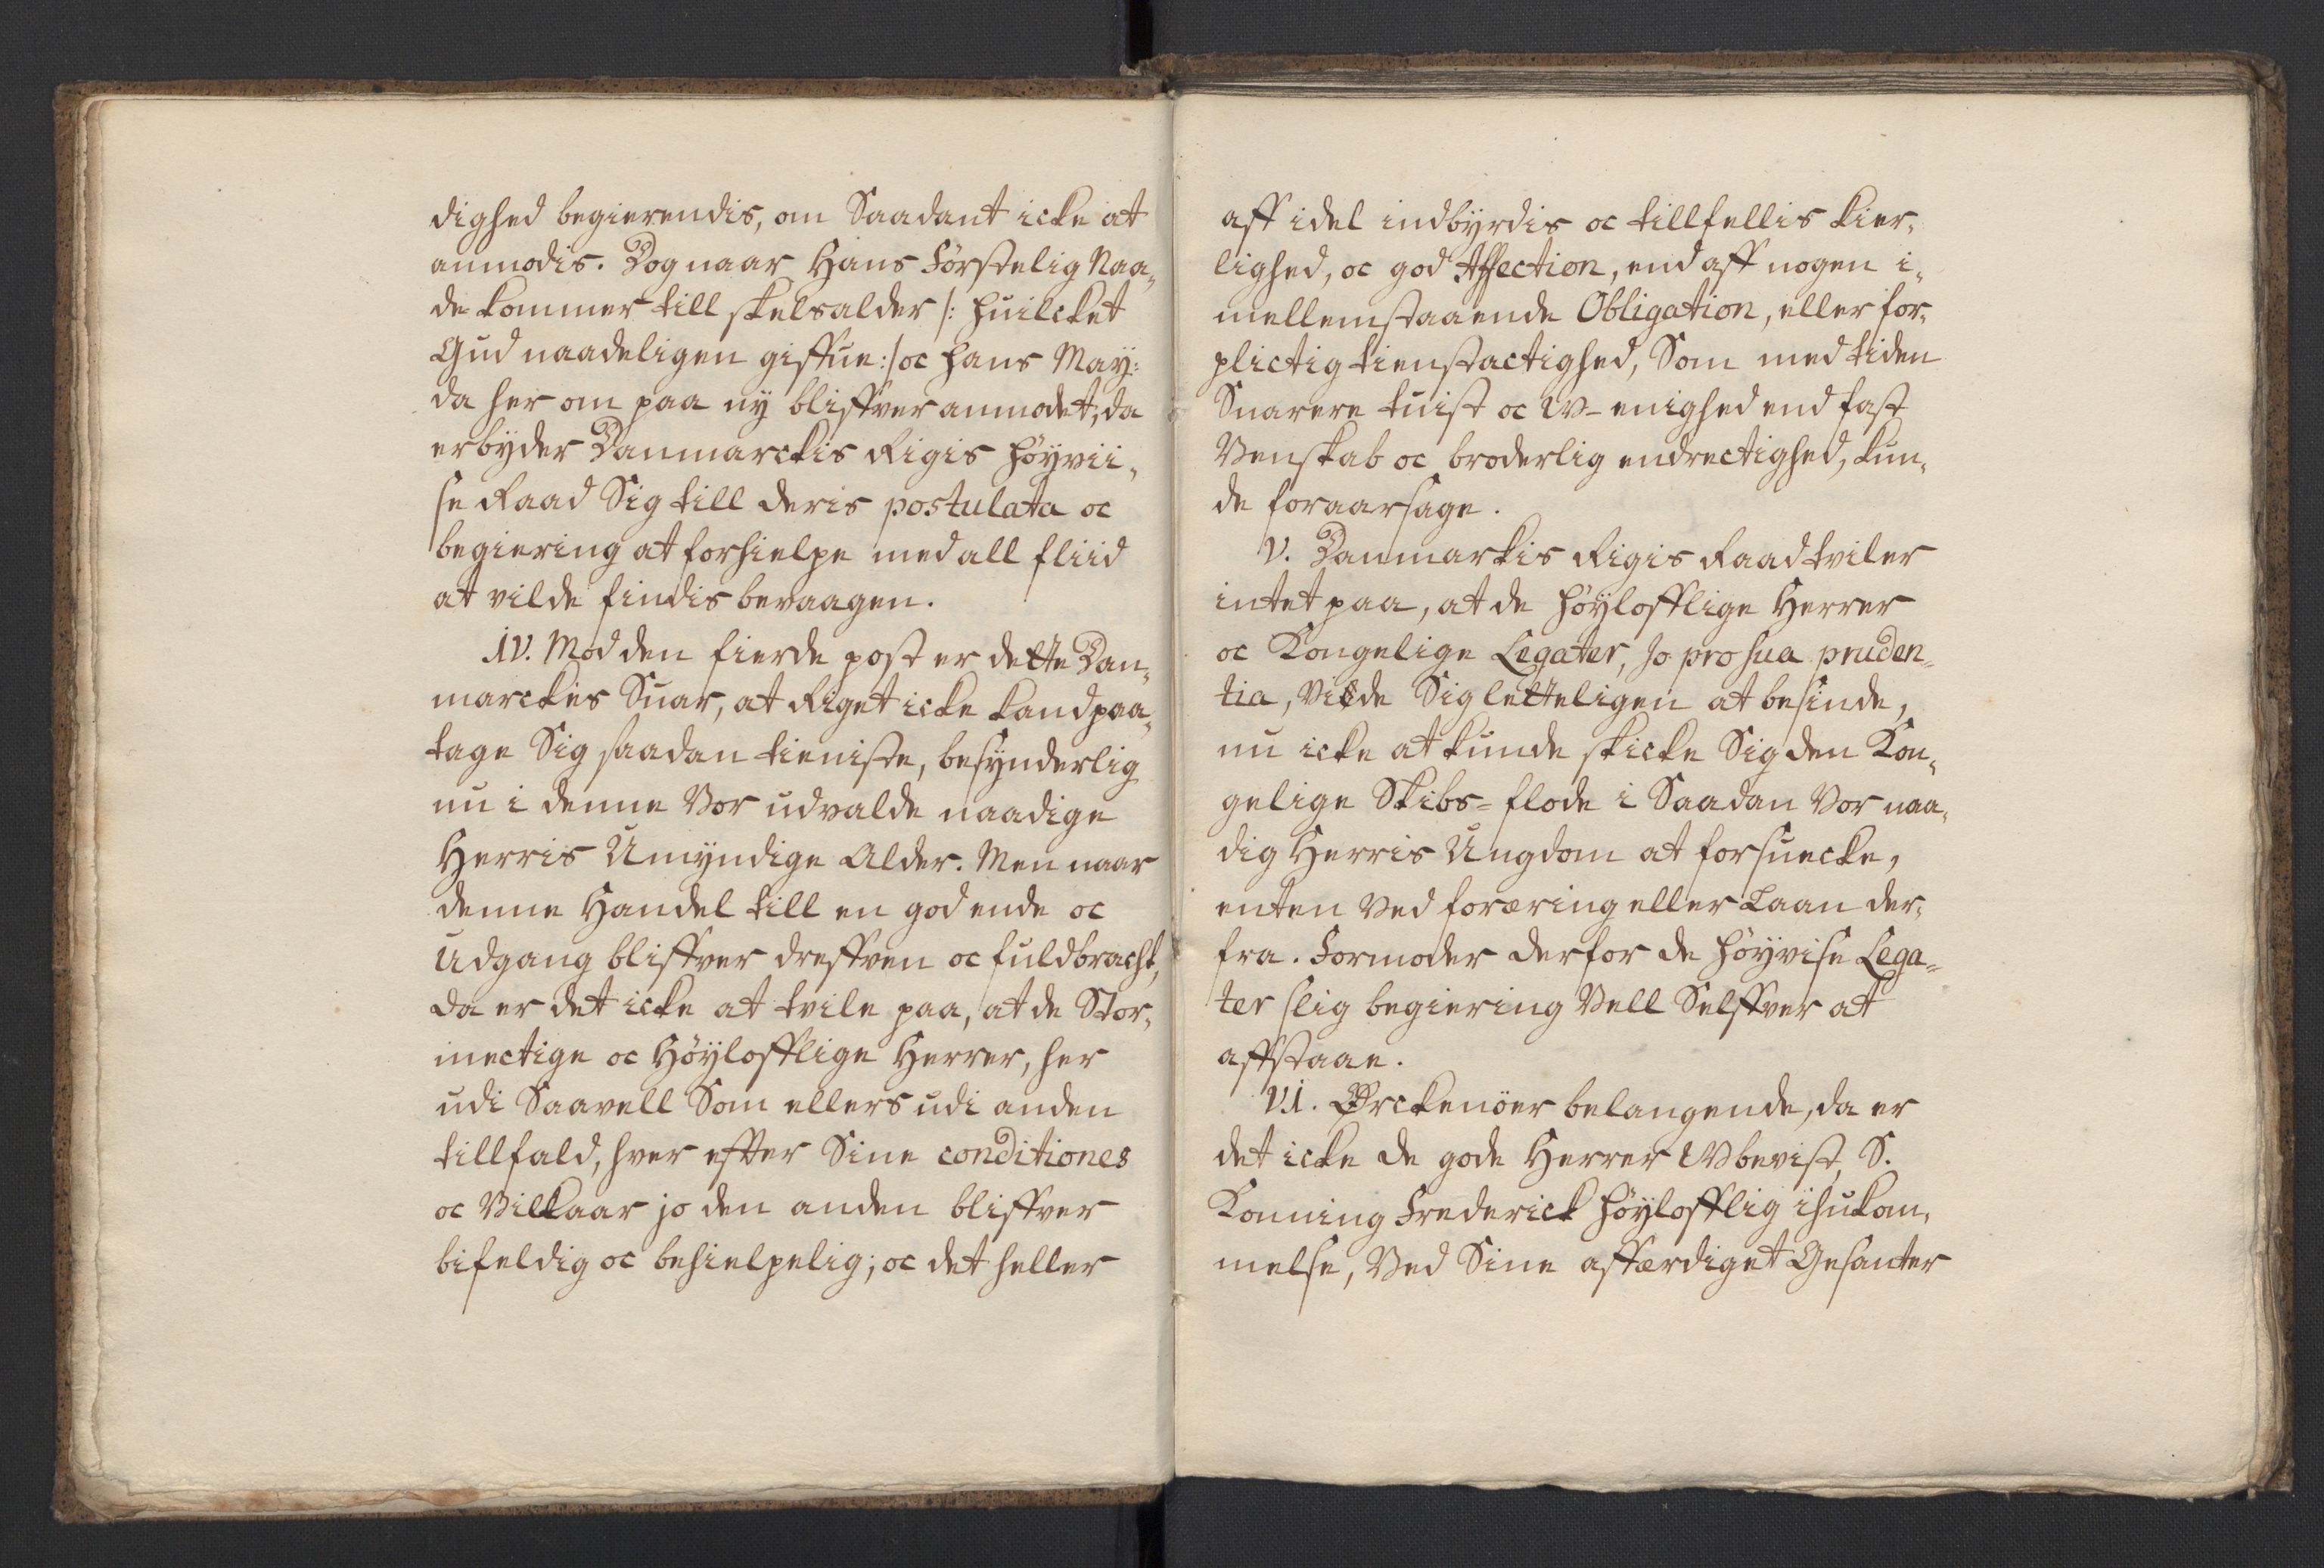 dighed begierendis, om Saadant icke at
anmodis. Dog naar Hans Förstelig Naa„
de kommer till skelsalder /: huilcket
Gud naadeligen giffue :/ oc hans May:
da her om paa ny bliffver anmodet, da
erbyder Danmarckis Rigis höyvii„
se Raad Sig till deris postulata oc
begiering at forhielpe med all fliid
at vilde findis bevaagen.
IV. Mod den fierde post er dette Dan„
marckis Suar, at Riget icke kand paa„
tage Sig saadan tieniste, besynderlig
nu i denne Vor udvalde naadige
Herris Umyndige Alder. Men naar
denne Handel till en god ende oc
Udgang bliffver dreffven oc fuldbracht,
da er det icke at tvile paa, at de Stor„
mectige oc Höylofflige Herrer, her
udi Saavell Som ellers udi anden
tillfald, hver effter Sine conditiones
oc Vilkaar jo den anden bliffver
bifeldig oc behielpelig; oc det heller
aff idel indbyrdis oc tillfellis kier„
lighed, oc god Affection, end aff nogen i„
mellemstaaende Obligation, eller for„
plictig tienstactighed, Som med tiden
Snarere tuist oc W-enighed end fast
Venskab oc broderlig endrectighed, kun„
de foraarsage.
V. Danmarkis Rigis Raad tviler
intet paa, at de höylofflige Herrer
oc Kongelige Legater, Jo pro sua pruden„
tia, Vilde Sig letteligen at besinde,
nu icke at kunde skicke Sig den Kon„
gelige Skibs=flode i Saadan Vor naa„
dig Herris Ungdom at forsuecke,
enten Ved foræring eller Laan der„
fra. Formoder derfor de höyvise Lega„
ter slig begiering Vell Selffver at
affstaae.
VI. Ørckenöer belangende, da er
det icke de gode Herrer Wbevist, S.
Konning Frederick höylofflig ihukom„
melse, Ved Sine affærdiget Gesanter